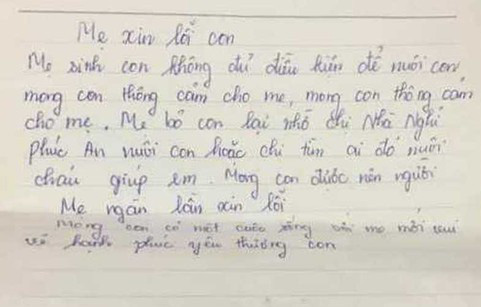 Mẹ xin lỗi con
Mẹ sinh con không đủ điều kiện để nuôi con,
mong con thông cảm cho mẹ, mong con thông cảm
cho mẹ. Mẹ bỏ con lại nhờ chị Nhà Nghỉ
Phúc An nuôi con hoặc chị tìm ai đó nuôi
cháu giúp em. Mong con được nên người
Mẹ ngàn lần xin lỗi
Mong con có một cuộc sống với mẹ mới vui
vẻ hạnh phúc yêu thương con